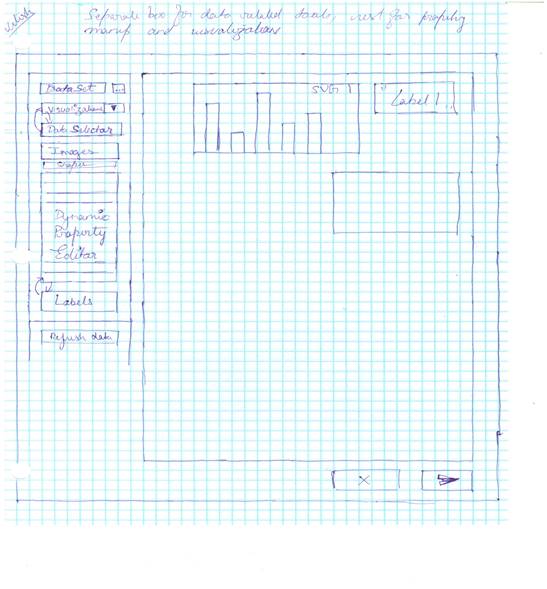 Separate box for data related tools, rest for property
manip and visualizations
DataSet ...
Visualizations
Data Selector
Images
Dynamic
Property
Editor
Labels
Refresh data
SVG 1
Label 1 ..
X